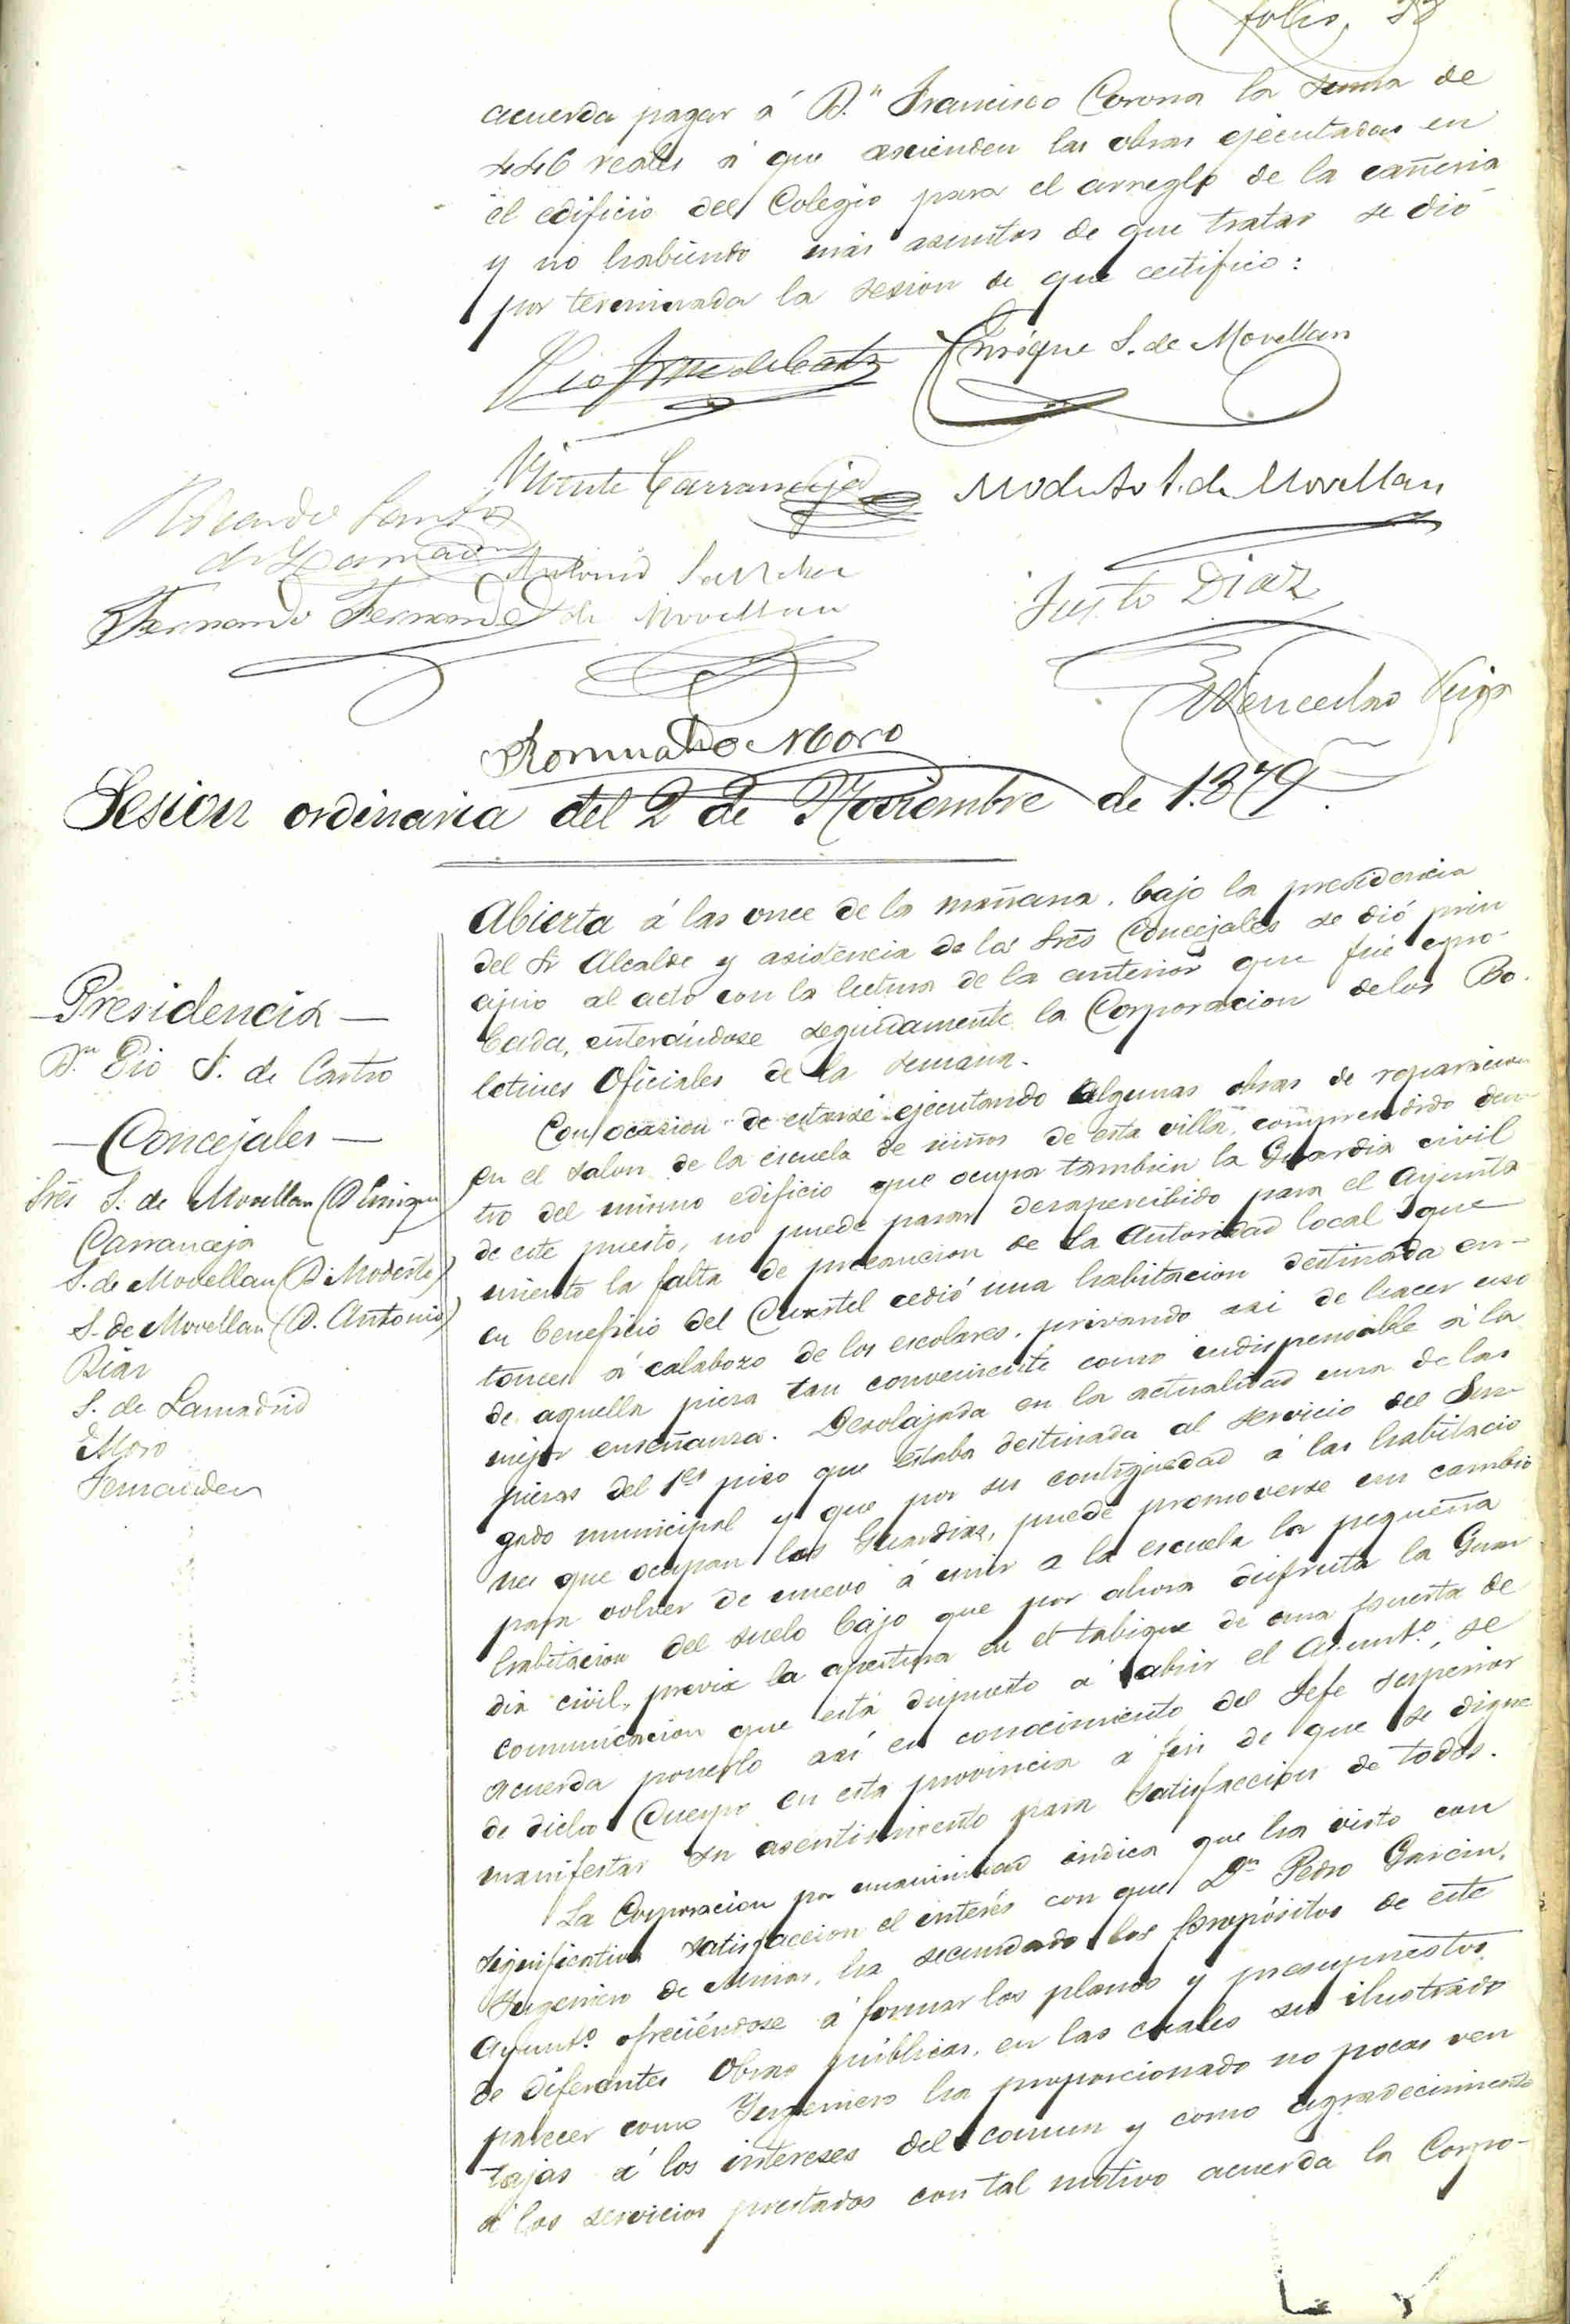 folio, 28
acuerda pagar á D.n Francisco Corona la suma de
446 reales á que ascienden las obras ejecutadas en
el edificio del Colegio para el arreglo de la cañeria
y no habiendo más asuntos de que tratar se dió
por terminada la sesion de que certifico:
Enrique S. de Movellan
Vicente Carranceja
Modesto S. de Movellan
Ricardo Santos
de Lamadrid
Antonio Sanchez
de Movellan
Justo Diaz
Fernando Fernandez
Wenceslao Veiga
Romualdo Moro
Sesion ordinaria del 2 de Noviembre de 1.879.
Presidencia
D.n Pio S. de Castro
Concejales
Sres S. de Movellan (D Enrique)
Carranceja
S. de Movellan (D. Modesto)
S. de Movellan (D. Antonio)
Diaz
S. de Lamadrid
Moro
Fernandez
Abierta á las once de la mañana, bajo la presidencia
del Sr Alcalde y asistencia de los Sres Concejales se dió prin
cipio al acto con la lectura de la anterior que fué apro-
bada, enterándose seguidamente la Corporacion delos Bo-
letines Oficiales de la semana.
Con ocasion de estarse ejecutando algunas obras de reparacion
en el salon de la escuela de niños de esta villa, comprendido den-
tro del mismo edificio que ocupa tambien la Guardia civil
de este puesto, no puede pasar desapercibido para el Ayunta
miento la falta de precaucion de la Autoridad local que
en beneficio del Cuartel cedió una habitacion destinada en-
tonces á calabozo de los escolares, privando asi de hacer uso
de aquella pieza tan conveniente como indispensable á la
mejor enseñanza. Desalojada en la actualidad una de las
piezas del 1er piso que estaba destinada al servicio del Juz-
gado municipal y que por su contigüedad á las habitacio
nes que ocupan los Guardias, puede promoverse un cambio
para volver de nuevo á unir a la escuela la pequeña
habitacion del suelo bajo que por ahora disfruta la Guar
dia civil, previa la apertura en el tabique de una puerta de
comunicacion que está dispuesto á abrir el Ayunt.o, se
acuerda ponerlo asi en conocimiento del Jefe superior
de dicho Cuerpo en esta provincia á fin de que se digne
manifestar su asentimiento para satisfaccion de todos.
La Corporacion por unanimidad indica que ha visto con
significativa satisfaccion el interés con que D.n Pedro Garcia,
Ingeniero de Minas, ha secundado los propósitos de este
Ayunt.o ofreciéndose á formar los planos y presupuestos
de diferentes Obras públicas, en las cuales su ilustrado
parecer como Ingeniero ha proporcionado no pocas ven
tajas á los intereses del comun y como agradecimiento
á los servicios prestados con tal motivo acuerda la Corpo-